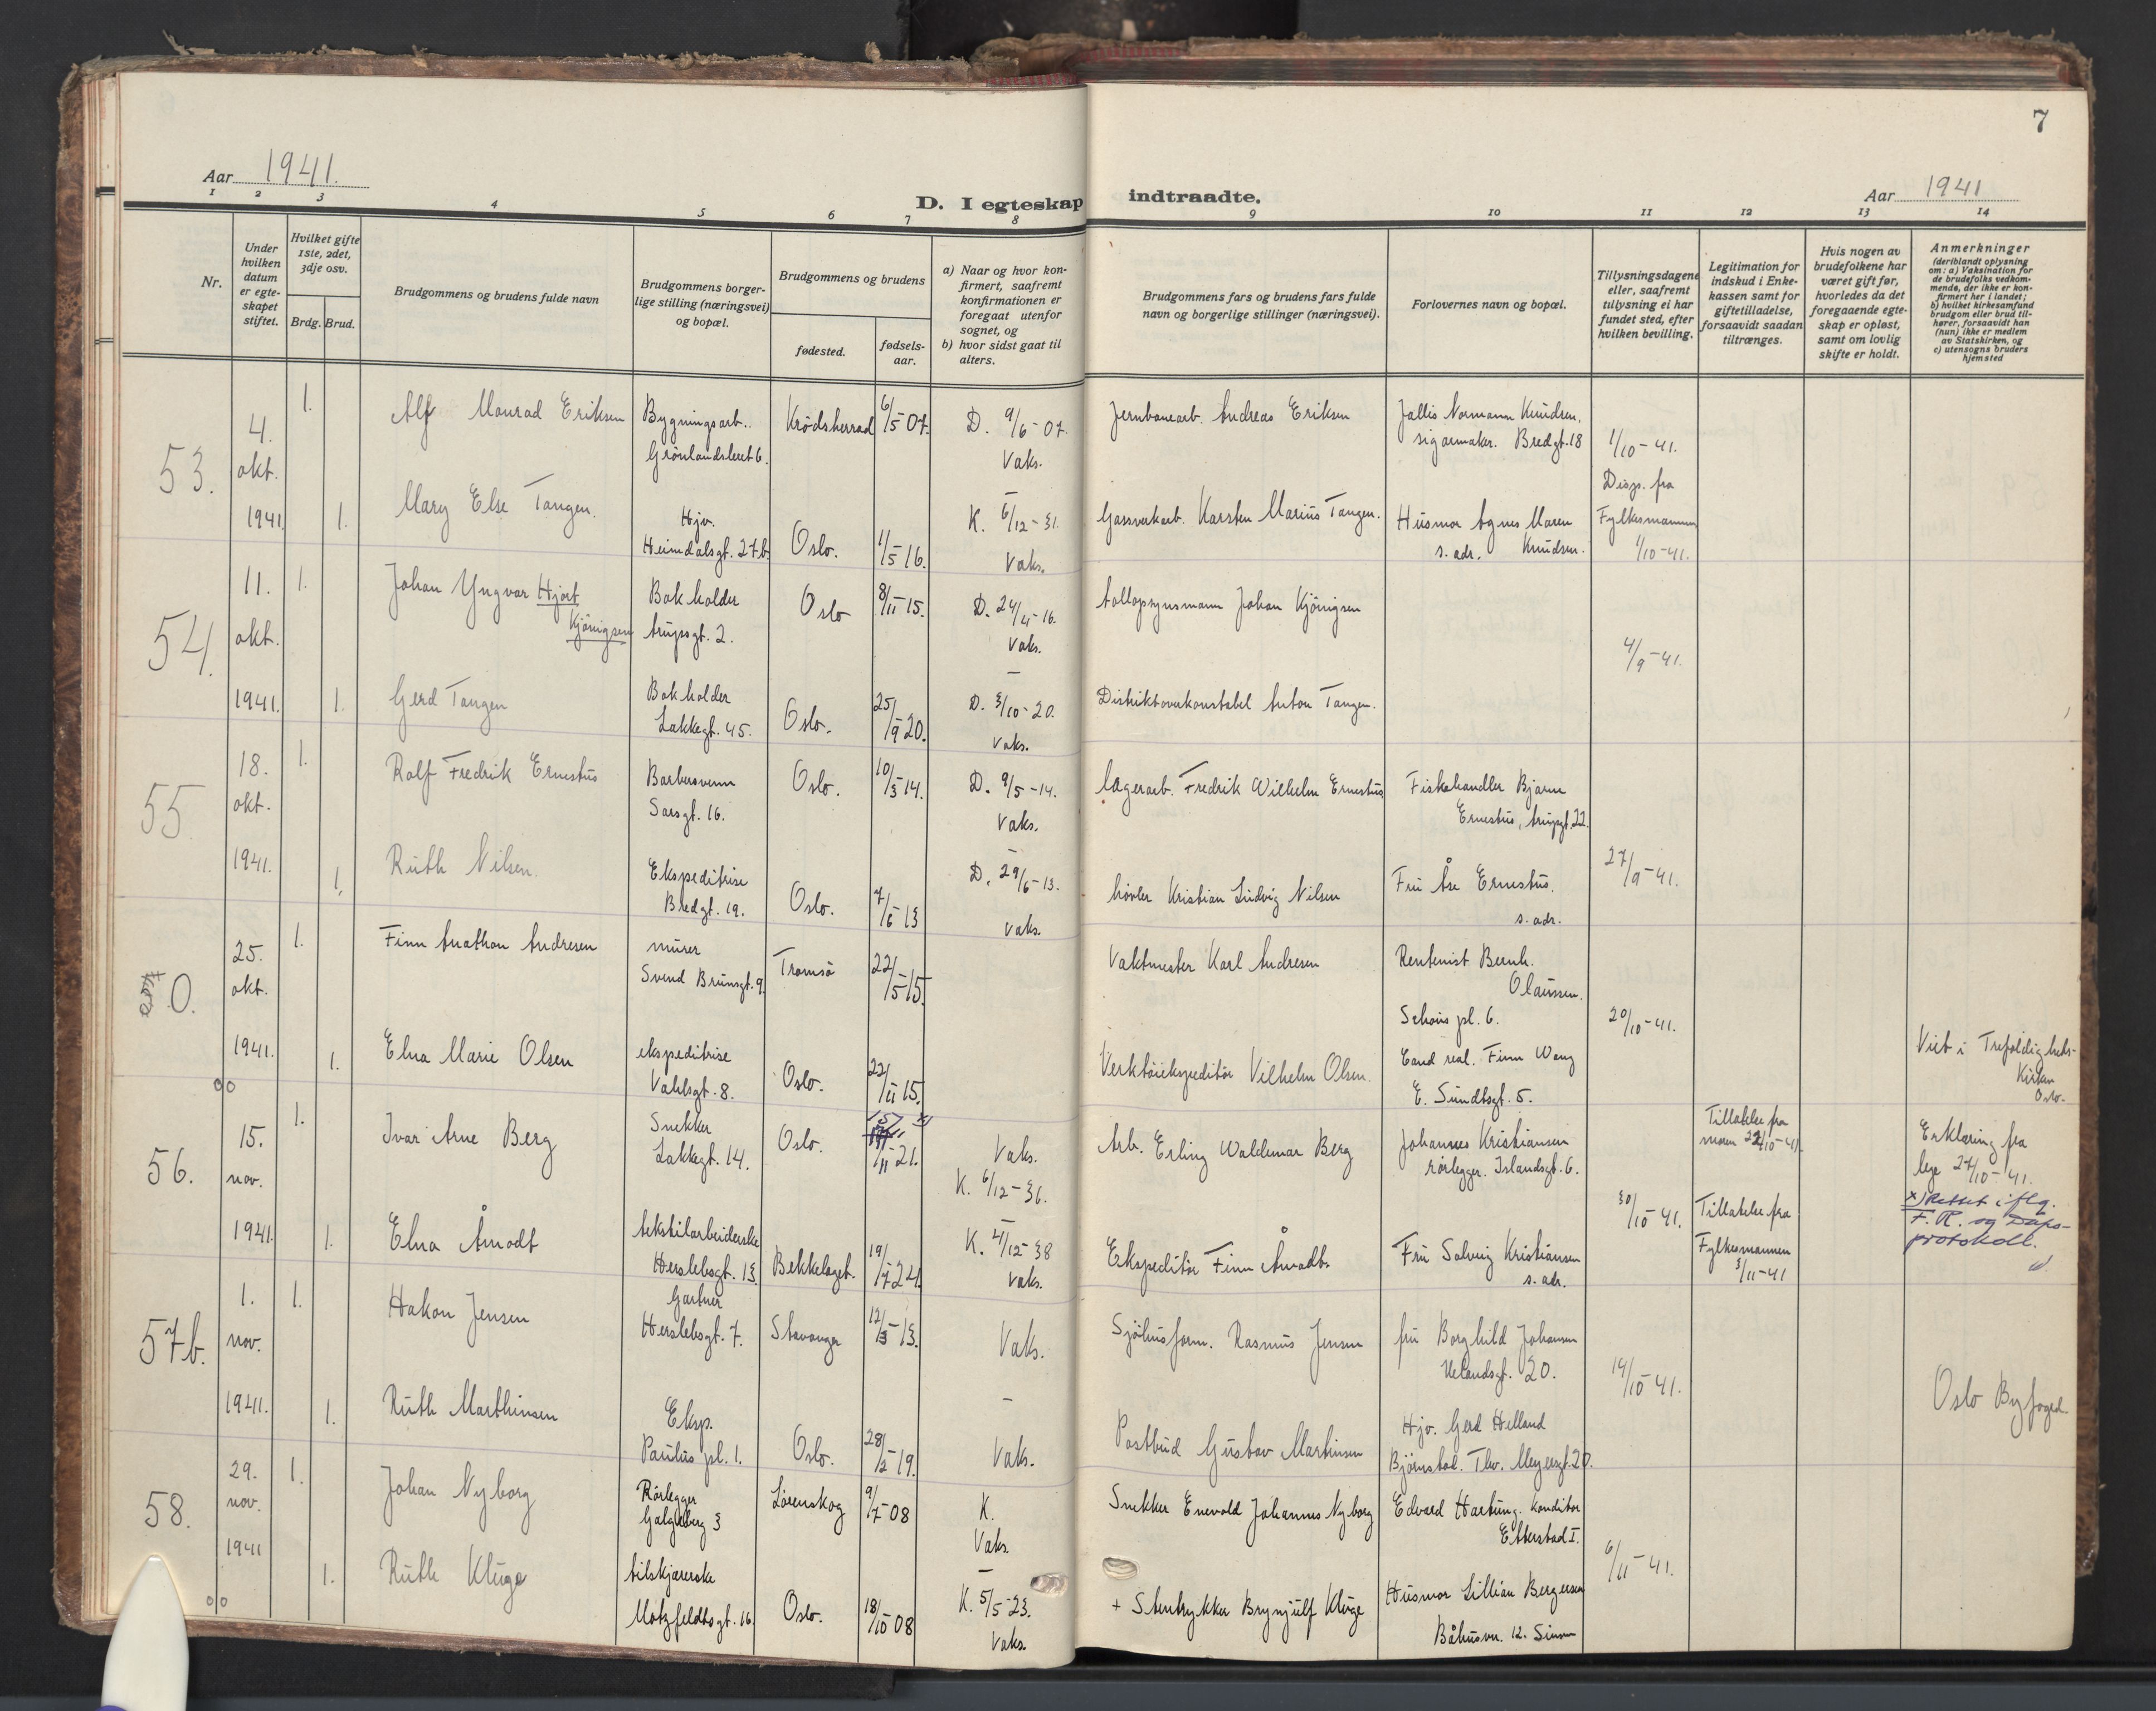 7
Aar 1941.
D. I egteskap indtraadte.
Aar 1941
1 2 3 4 5 6 7 8 9 10 11 12 13 14
Nr.
Under
hvilken
datum
er egte-
skapet
stiftet.
Hvilket gifte
1ste, 2det,
3dje osv.
Brdg.
Brud.
Brudgommens og brudens fulde navn
Brudgommens borger-
lige stilling (næringsvei)
og bopæl.
Brudgommens og brudens
fødested.
fødsels-
aar.
a) Naar og hvor kon-
firmert, saafremt
konfirmationen er
foregaat utenfor
sognet, og
b) hvor sidst gaat til
alters.
Brudgommens fars og brudens fars fulde
navn og borgerlige stillinger (næringsvei).
Forlovernes navn og bopæl.
Tillysningsdagene
eller, saafremt
tillysning ei har
fundet sted, efter
hvilken bevilling.
Legitimation for
indskud i Enke-
kassen samt for
giftetilladelse,
forsaavidt saadan
tiltrænges.
Hvis nogen av
brudefolkene har
været gift før,
hvorledes da det
foregaaende egte-
skap er opløst,
samt om lovlig
skifte er holdt.
Anmerkninger
(deriblandt oplysning
om: a) Vaksination for
de brudefolks vedkom-
mende, der ikke er kon-
firmert her i landet;
b) hvilket kirkesamfund
brudgom eller brud til-
hører, forsaavidt han
(hun) ikke er medlem
av Statskirken, og
c) utensogns bruders
hjemsted
53.
4.
okt.
1941
1.
Alf Monrad Eriksen
Bygningsarb..
Grønlandsleret 6.
Krødsherrad
6/5-07.
D. 9/6-07.
Vaks.
Jernbanearb. Andreas Eriksen
Jallis Normann Knudsen,
sigarmaker. Bredgt. 18
1/10-41.
Disp. fra
Fylkesmannen
1/10-41.
1.
Mary Else Tangen.
Hjv.
Heimdalsgt. 27b.
Oslo.
1/5 16.
K. 6/12-31.
Vaks.
Gassverkarb. Karsten Marius Tangen.
Husmor Agnes Maren
s. adr. Knudsen.
54.
11.
okt.
1941.
1.
Johan Yngvar Hjort
Kjönigsen
Bokholder
Krupsgt. 2.
Oslo
8/11-15.
D. 24/4-16.
Vaks.
tollopsynsmann Johan Kjönigsen
4/9-41.
1.
Gerd Tangen
Bokholder
Lakkegt. 45.
Oslo.
25/9 20.
D. 3/10-20.
Vaks.
Distriktsoverkonstabel Anton Tangen.
55
18.
okt.
1941.
1.
Rolf Fredrik Ernestus
Barbersvenn
Sarsgt. 16.
Oslo.
10/3 14.
D. 9/5-14.
Vaks.
lagerarb. Fredrik Wilhelm Ernestus
Fiskehandler Bjarne
Ernestus,
27/9-41.
1.
Ruth Nilsen.
Ekspeditrise
Bredgt. 19.
Oslo.
D. 29/6-13.
Vaks.
høvler Kristian Ludvig Nilsen
Fru Åse Ernestus.
s. adr.
0.
25.
okt.
1941.
1.
Finn Anathon Andresen
murer
Svend Brunsgt. 9.
Tromsö
22/5-15.
Vaktmester Karl Andresen
Rentenist Bernh.
Olaussen.
Schous pl. 6.
20/10-41.
1.
Elna Marie Olsen
ekspeditrise
Vahlsgt. 8.
Oslo.
22/11 15.
Verktöiekspeditör Vilhelm Olsen.
Cand real. Finn Wang
E. Sundtsgt. 5.
Viet i Trefoldighets-
Kirken
Oslo.
56.
15.
nov.
1941
1.
Ivar Arne Berg
Snekker
Lakkegt. 14.
Oslo.
11-21.
Vaks.
K. 6/12-36.
Arb. Erling Waldemar Berg
Johannes Kristiansen
rörlegger. Islandsgt. 6.
30/10-41.
Tillatelse fra
moren 22/10-41.
Erklæring fra
lege 27/10-41.
x) Rettet iflg.
F.R. og Daps-
protokoll.
1.
Elna Åmodt
tekstilarbeiderske
Herslebsgt. 13.
Bekkelaget.
19/7 24.
K. 4/12-38
Vaks.
Ekspeditör Finn Åmodt.
Fru Solveig Kristiansen
s. adr.
Tillatelse fra
Fylkesmannen
3/11-41
57b.
1.
nov.
1941.
1.
Hakon Jensen
Gartner
Herslebsgt. 7.
Stavanger
12/3-13.
Vaks.
Sjöhusform. Rasmus Jensen
fru Borghild Johansen
Uelandsgt. 20.
14/10-41.
Oslo Byfoged
1.
Ruth Marthinsen
Eksp.
Paulus pl. 1.
Oslo.
28/2-19.
Vaks.
Postbud Gustav Marthinsen
Hjv. Gerd Helland
Bjørnstad. Thv. Meyersgt. 20.
58.
29.
nov.
1941
1.
Johan Nyborg
Rörlegger
Galgeberg 3
Lörenskog
9/7-08
K.
Vaks.
Snekker Enevold Johannes Nyborg
Edvard Hartung. Konditor
Etterstad I.
6/11-41.
1.
Ruth Kluge
tilskjærerske
Motzfeldtsgt. 16.
Oslo.
18/10 08
K. 5/5-23.
Vaks.
+ Stentrykker Brynjulf Kluge
Husmor Lillian Bergersen
Båhusvn. 12. Sinsen